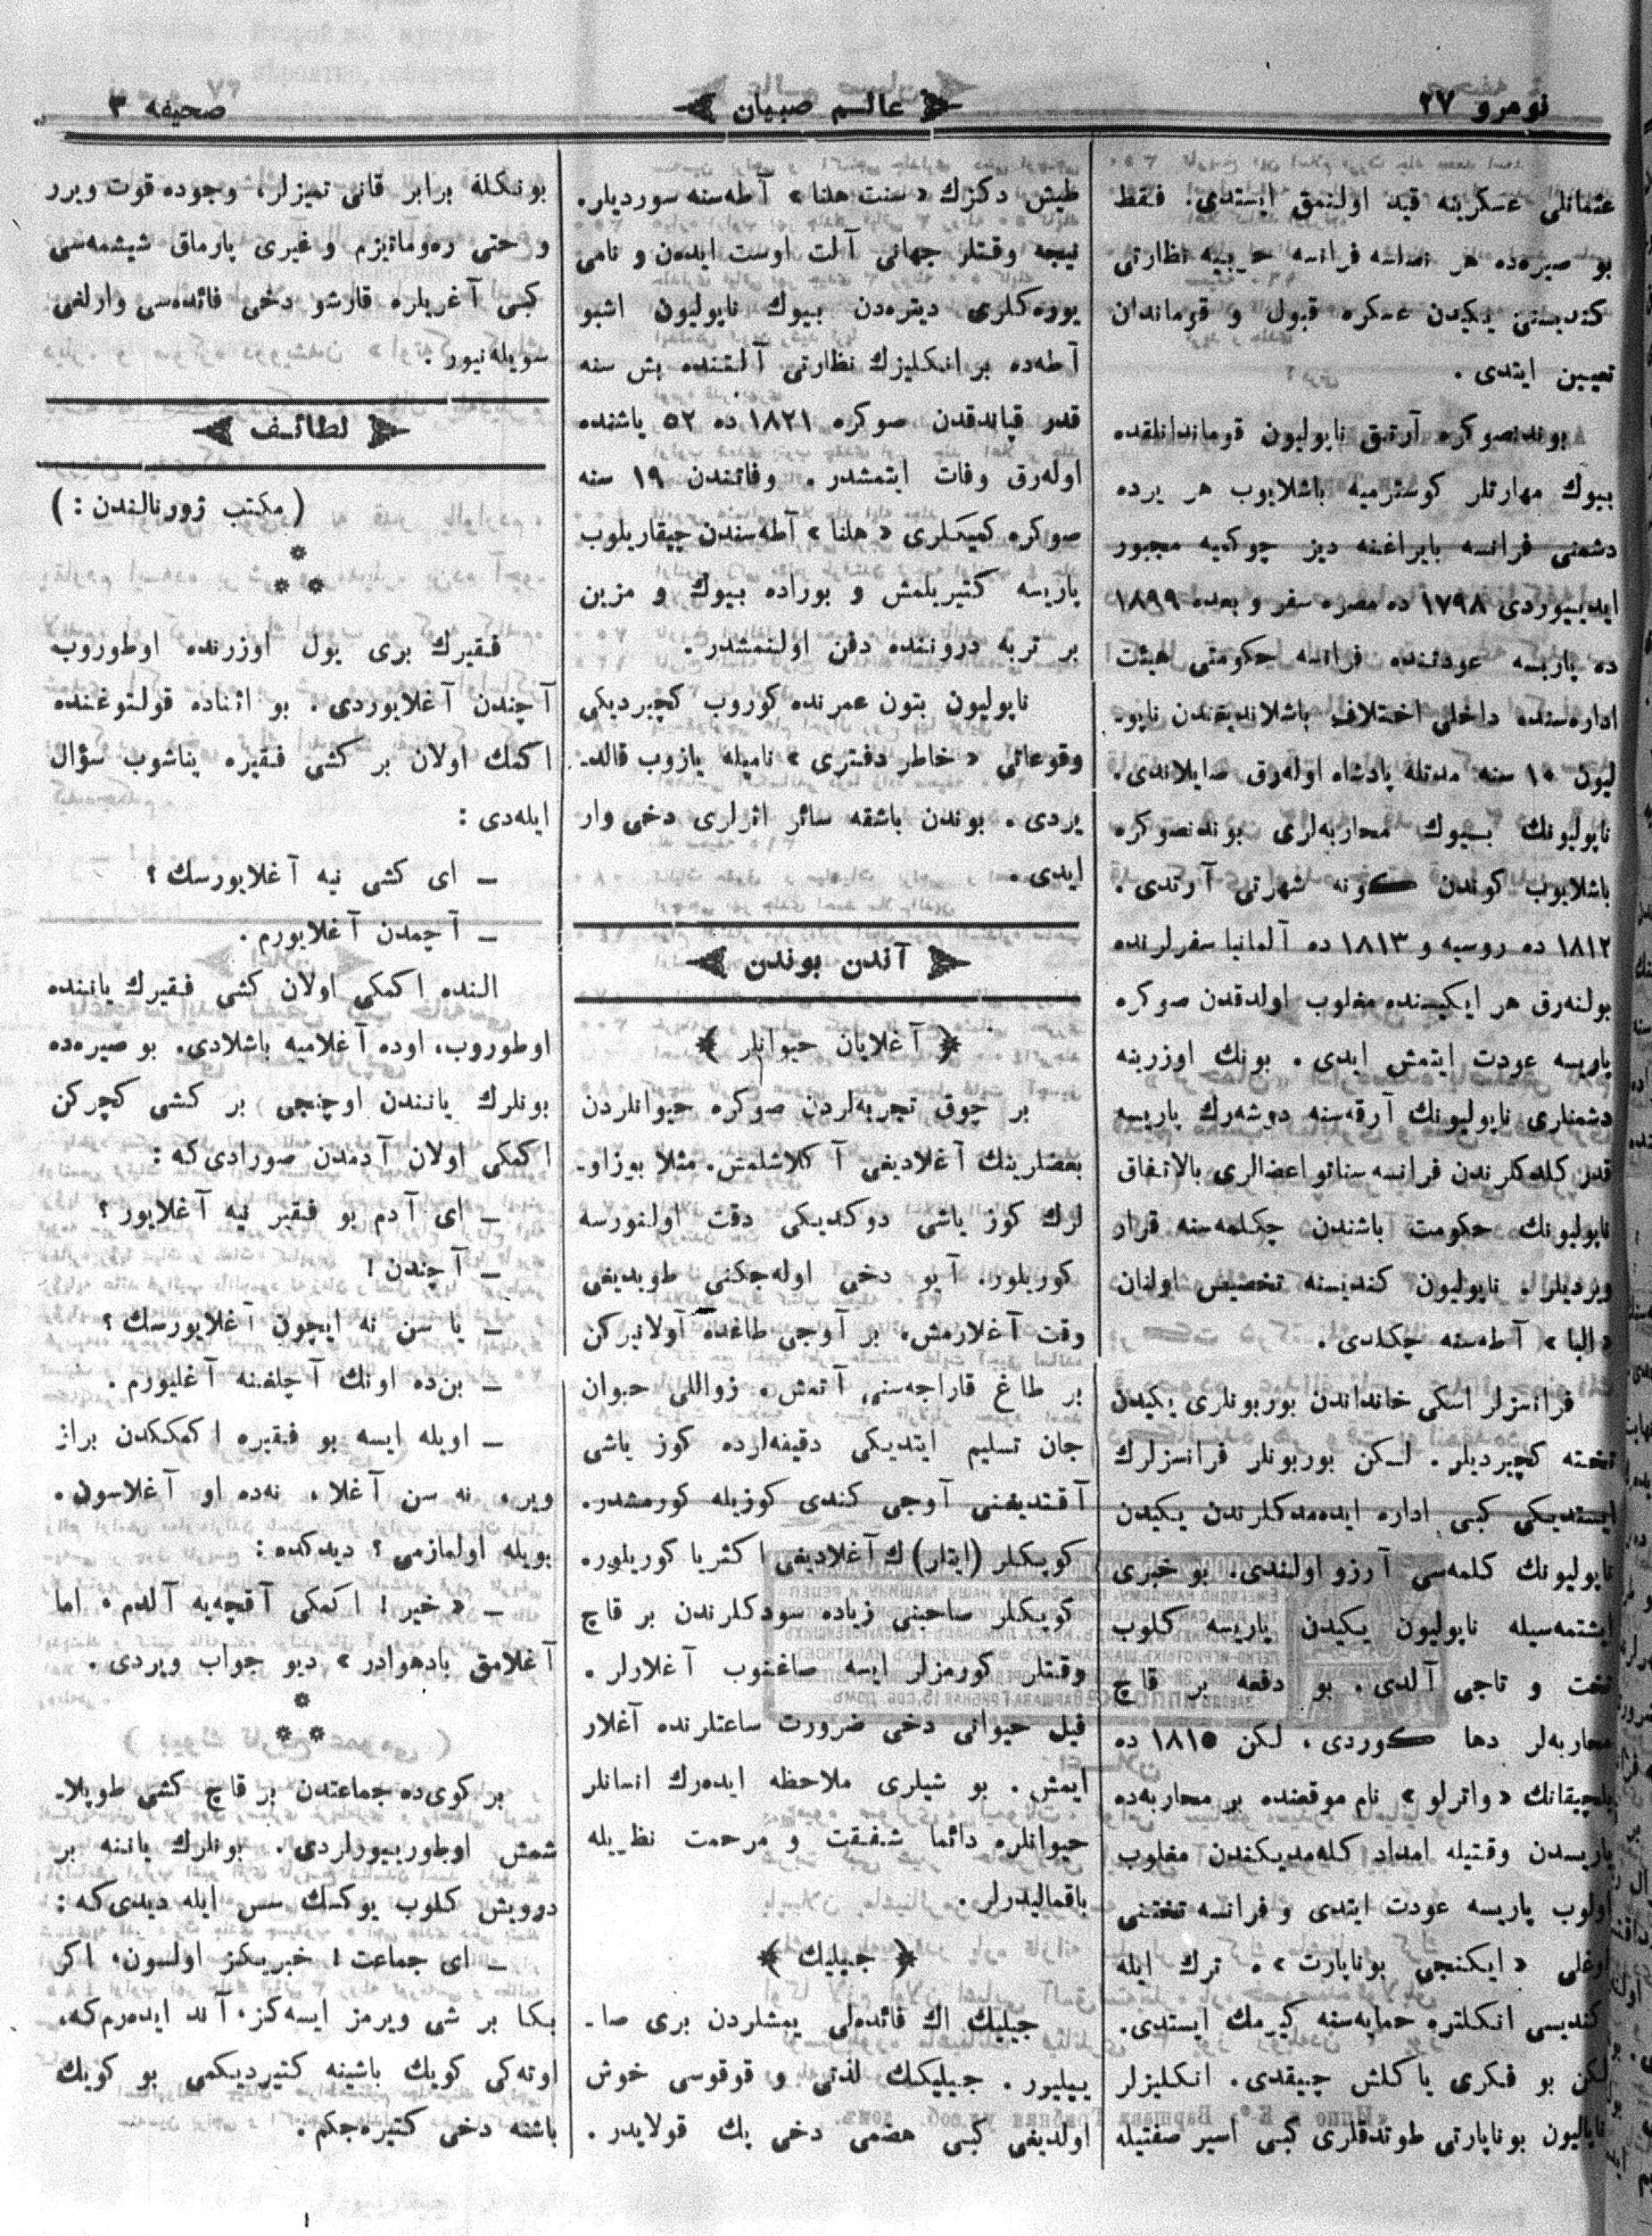 نومرو ٢٧
عالم صبيان
صحيفه ٣
عثمانلی عسكرينه قيد اولنمق ايستدی. فقط
بو صيره‌ده هر نصلسه فرانسه حربيه نظارتی
كنديسنی يكيدن عسكره قبول و قوماندان
تعيين ايتدی .
بوندنصوكره آرتق ناپوليون قوماندانلقده
بيوك مهارتلر كوسترميه باشلايوب هر يرده
دشمنی فرانسه بايراغنه ديز چوكميه مجبور
ايدييوردی ١٧٩٨ ده مصره سفر و بعده ١٨٩٩
ده پاريسه عودتنده فرانسه حكومتی هيئت
اداره‌سنده داخلی اختلاف باشلانديغندن ناپو-
ليون ١٠ سنه مدتله پادشاه اوله‌رق صايلاندی.
ناپوليونك بيوك محاربه‌لری بوندنصوكره
باشلايوب كوندن كونه شهرتی آرتدی.
١٨١٢ ده روسيه و ١٨١٣ ده آلمانيا سفرلرنده
بولنه‌رق هر ايكيسنده مغلوب اولدقدن صوكره
پاريسه عودت ايتمش ايدی . بونك اوزرينه
دشمنلری ناپوليونك آرقه‌سنه دوشه‌رك پاريسه
قدر كلدكلرندن فرانسه سناتو اعضالری بالاتفاق
ناپوليونك حكومت باشندن چكلمه‌سنه قرار
ويرديلر. ناپوليون كنديسنه تخصيص اولنان
«البا» آطه‌سنه چكلدی .
فرانسزلر اسكی خانداندن بوربونلری يكيدن
تخته كچيرديلر . لكن بوربونلر فرانسزلرك
ايستديكی كبی اداره ايده‌مدكلرندن يكيدن
ناپوليونك كلمه‌سی آرزو اولندی. بو خبری
ايشتمه‌سيله ناپوليون يكيدن پاريسه كلوب
تخت و تاجی آلدی . بو دفعه بر قاچ
محاربه‌لر دها كوردی . لكن ١٨١٥ ده
بلچيقانك «واترلو» نام موقعنده بر محاربه‌ده
پاريسدن وقتيله امداد كله‌مديكندن مغلوب
اولوب پاريسه عودت ايتدی و فرانسه تختنی
اوغلی «ايكنجی بوناپارت» ه ترك ايله
كنديسی انكلتره حمايه‌سنه كيرمك ايستدی.
لكن بو فكری ياكلش چيقدی . انكليزلر
ناپاليون بوناپارتی طوتدقلری كبی اسير صفتيله
طيش دكزك «سنت هلنا» آطه‌سنه سورديلر.
نيجه وقتلر جهانی آلت اوست ايدەن و نامی
يوره‌كلری ديتره‌دن بيوك ناپوليون اشبو
آطه‌ده بر انكليزك نظارتی آلتنده بش سنه
قدر قپاندقدن صوكره ١٨٢١ ده ٥٢ ياشنده
اوله‌رق وفات ايتمشدر . وفاتندن ١٩ سنه
صوكره كميكلری «هلنا» آطه‌سندن چيقاريلوب
پاريسه كتيريلمش و بوراده بيوك و مزين
بر تربه دروننده دفن اولنمشدر .
ناپوليون بتون عمرنده كوروب كچيرديكی
وقوعاتی «خاطر دفتری» ناميله يازوب قالد-
يردی . بوندن باشقه سائر اثرلری دخی وار
ايدی .
آندن بوندن
آغلايان حيوانلر
بر چوق تجربه‌لردن صوكره حيوانلردن
بعضلرينك آغلاديغی آكلاشلمش. مثلا بوزاو-
لرك كوز ياشی دوكديكی دقت اولنورسه
كوريلور. آيو دخی اوله‌جكنی طويديغی
وقت آغلارمش. بر آوجی طاغده آولانيركن
بر طاغ قاراجه‌سنی آتمش . زواللی حيوان
جان تسليم ايتديكی دقيقه‌لرده كوز ياشی
آقتديغنی آوجی كندی كوزيله كورمشدر.
كوپكلر (ايتلر) ك آغلاديغی اكثريا كوريلوره
كوپكلر صاحبنی زياده سودكلرندن بر قاچ
وقتلر كورمزلر ايسه صاغنوب آغلارلر .
فيل حيوانی دخی ضرورت ساعتلرنده آغلار
ايمش . بو شيلری ملاحظه ايده‌رك انسانلر
حيوانلره دائما شفقت و مرحمت نظريله
باقماليدرلر .
جيليك
جيليك اك فائده‌لی يمشلردن بری صا-
ييليور . جيليكك لذتی و قوقوسی خوش
اولديغی كبی هضمی دخی پك قولايدر .
بونكله برابر قانی تميزلر، وجوده قوت ويرر
و حتی ره‌وماتيزم و غيری پارماق شيشمه‌سی
كبی آغريلره قارشو دخی فائده‌سی وارلغی
سويله‌نيور .
لطائف
(مكتب ژورنالندن :)
*
* *
فقيرك بری يول اوزرنده اوطوروب
آچندن آغلايوردی . بو اثناده قولتوغنده
اكمك اولان بر كشی فقيره يناشوب سؤال
ايله‌دی :
— ای كشی نيه آغلايورسك ؟
— آجمدن آغلايورم .
النده اكمكی اولان كشی فقيرك ياننده
اوطوروب، اوده آغلاميه باشلادی. بو صيره‌ده
بونلرك ياننلدن اوچنجی بر كشی كچركن
اكمكی اولان آدمدن صورادی‌كه :
— ای آدم بو فقير نيه آغلايور ؟
— آجندن !
— يا سن نه ايچون آغلايورسك ؟
— بن‌ده اونك آچلغنه آغليورم .
— اويله ايسه بو فقيره اكمككدن براز
وير، نه سن آغلا، نه‌ده او آغلاسون .
بويله اولمازمی ؟ ديدكده :
— «خير ! اكمكی آقچه‌يه آلدم، اما
آغلامق بادهوادر» ديو جواب ويردی .
*
* *
بر كوی‌ده جماعتدن بر قاچ كشی طوپلا-
شمش اوطوريیورلردی . بونلرك ياننه بر
درويش كلوب يوكسك سس ايله ديدی‌كه :
— ای جماعت ! خبريكز اولسون، اكر
بكا بر شی ويرمز ايسه‌كز، آند ايده‌رم‌كه،
اوته‌كی كويك باشينه كتيرديكمی بو كويك
باشنه دخی كتيره‌جكم .